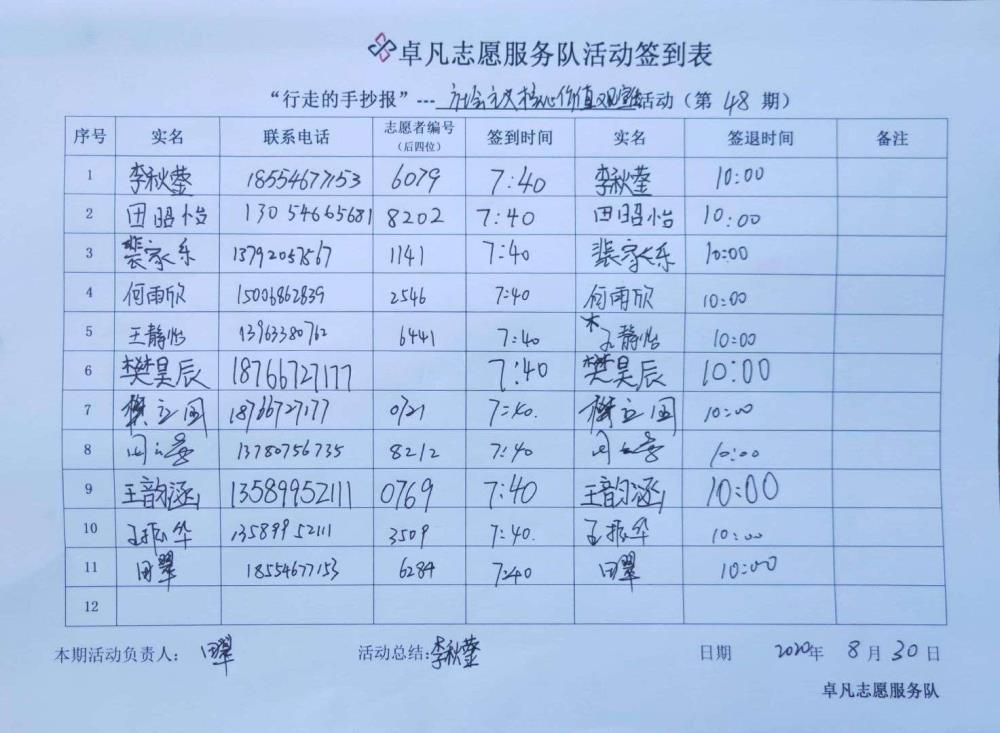 卓凡志愿服务队活动签到表
“行走的手抄报”---社会主义核心价值观宣传活动（第 48 期）
序号 实名 联系电话 志愿者编号（后四位） 签到时间 实名 签退时间 备注
1 李秋蓥 18554677153 6079 7:40 李秋蓥 10:00
2 田昭怡 13054665681 8202 7:40 田昭怡 10:00
3 裴家乐 13792057567 1141 7:40 裴家乐 10:00
4 何雨欣 15006862839 2546 7:40 何雨欣 10:00
5 王静怡 13963380762 6441 7:40 静怡 10:00
6 樊昊辰 18766727177 7:40 樊昊辰 10:00
7 樊立国 18766727177 0721 7:40. 樊立国 10:00
8 13780756735 8212 7:40 10:00
9 王韵涵 13589952111 0769 7:40 王韵涵 10:00
10 王振华 13589952111 3509 7:40. 王振华 10:00
11 田翠 18554677153 6284 7:40 田翠 10:00
12
本期活动负责人： 田翠 活动总结:李秋蓥 日期 2020年 8 月 30 日
卓凡志愿服务队